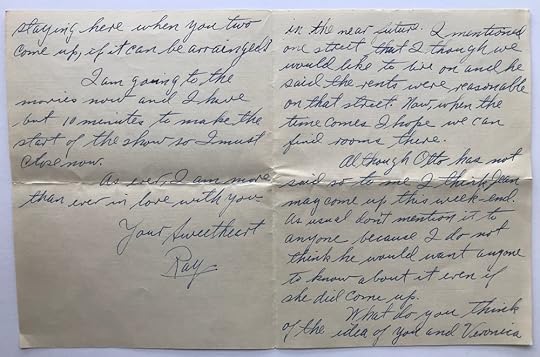 staying here when you two
come up, if it can be arranged?
I am going to the
movies now and I have
but 10 minutes to make the
start of the show so I must
close now.
As ever, I am more
than ever in love with you
Your Sweetheart
Ray
in the near future. I mentioned
one street that I though we
would like to live on and he
said the rents were reasonable
on that street. Now, when the
time comes I hope we can
find rooms there.
Although Otto has not
said so to me I think Jean
may come up this week-end.
As usual don't mention it to
anyone because I do not
think he would want anyone
to know about it even if
she did come up.
What do you think
of the idea of you and Veronica